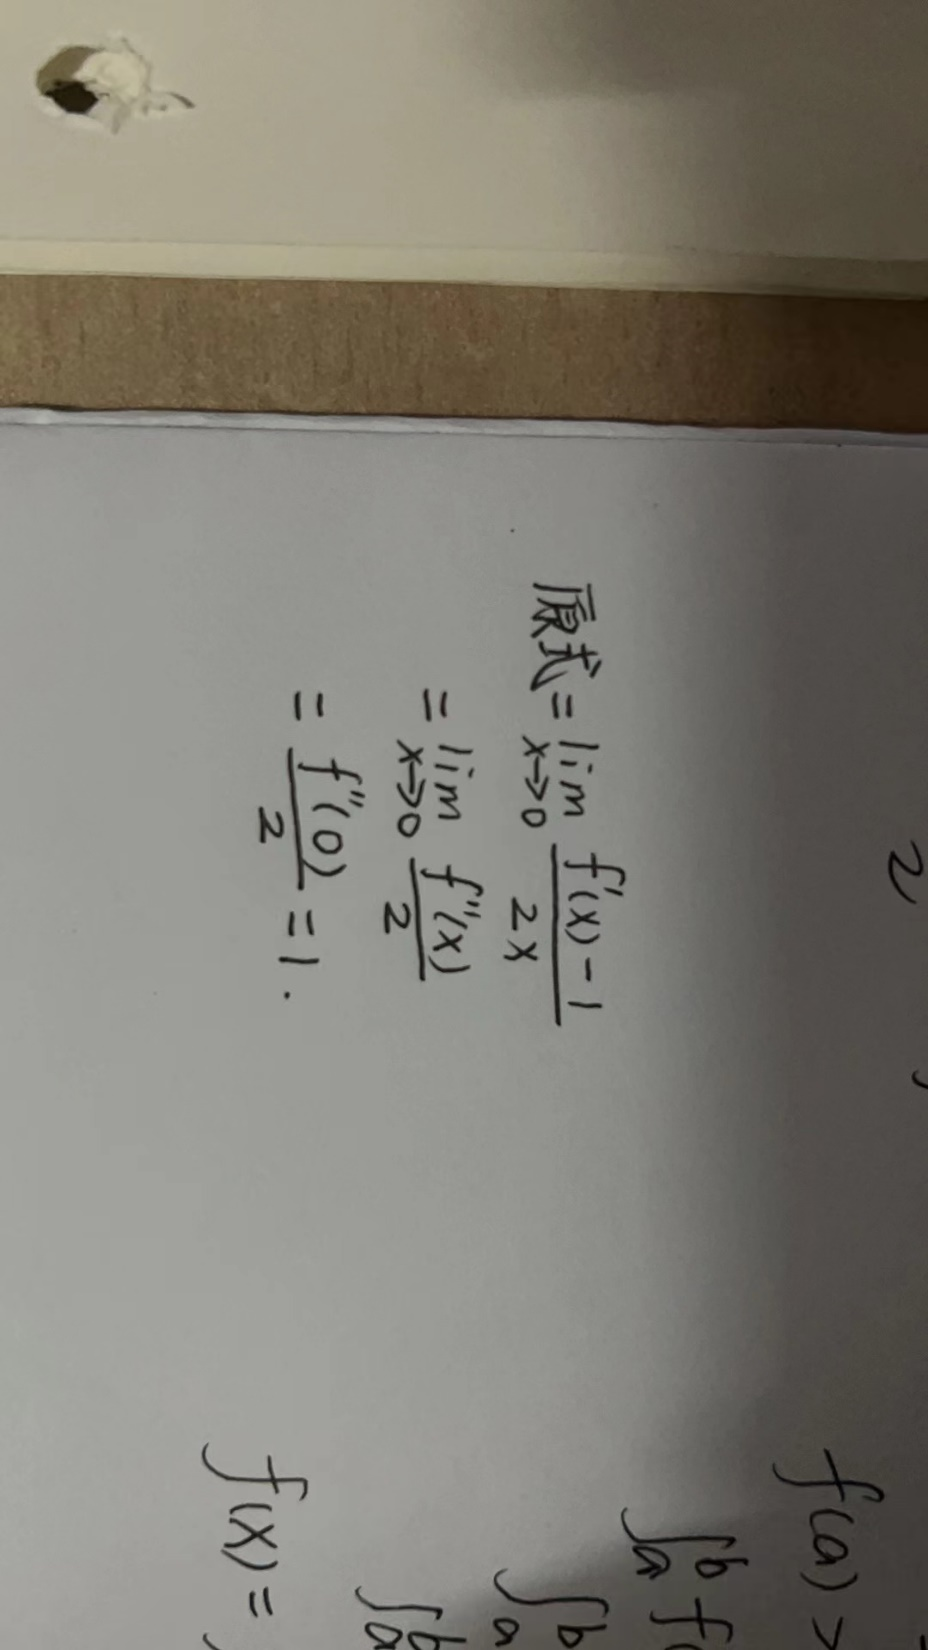 原式 = lim x→0 (f'(x) - 1)/(2x)
= lim x→0 f''(x)/2
= f''(0)/2 = 1.
2
f(a) >
∫a b f(
∫a b
∫a b
f(x) =